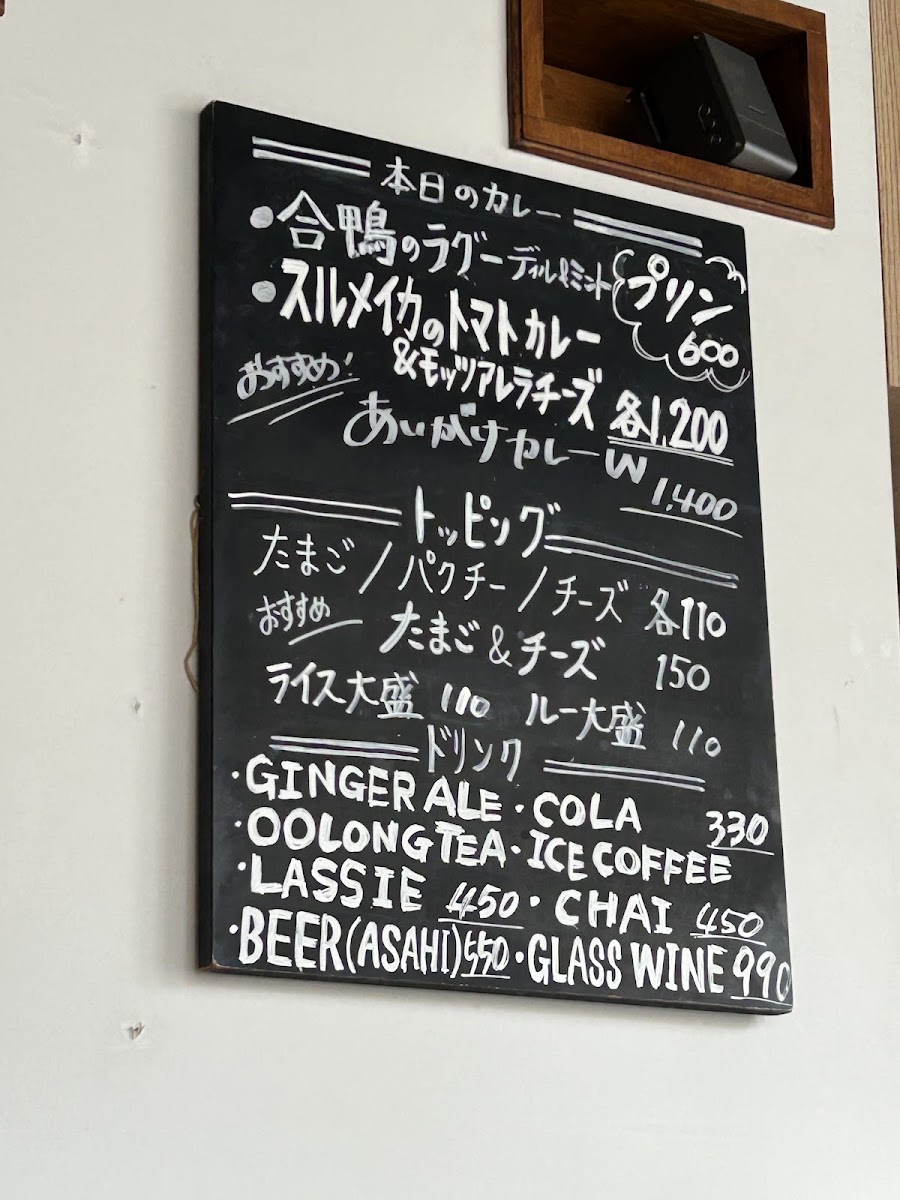 本日のカレー
・合鴨のラグー ディル&ミント
・スルメイカのトマトカレー
&モッツアレラチーズ 各1,200
プリン
600
おすすめ!
あいがけカレー W 1,400
トッピング
たまご/パクチー/チーズ 各110
おすすめ たまご&チーズ 150
ライス大盛 110 ルー大盛 110
ドリンク
・GINGER ALE・COLA 330
・OOLONG TEA・ICE COFFEE
・LASSIE 450・CHAI 450
・BEER(ASAHI)550・GLASS WINE 990